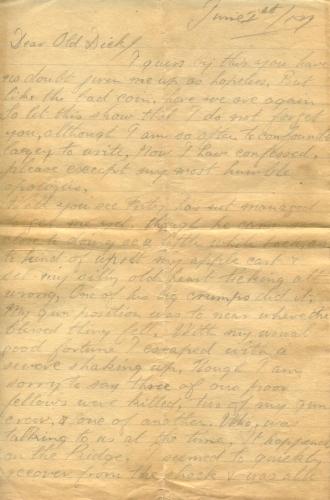 June 2st/17
Dear Old Dick/
I guess by this you have
no doubt given me up as hopeless. But
like the bad coin, here we are again.
So let this show that I do not forget
you, although I am so often to confounded
lazy to write. Now I have confessed,
please except my most humble
apologies.
Well you see Fritz has not managed
to get me yet, though he
a little while back
to kind of upset my apple cart &
set my silly old heart ticking all
wrong. One of his big crumps did it.
My gun position was to near where the
blessed thing fell. With my usual
good fortune I escaped with a
severe shaking up, though I am
sorry to say three of our poor
fellows were killed, two of my gun
crew, & one of another. Who, was
talking to us at the time. It happened
on the Ridge. I seemed to quickly
recover from the shock & was all